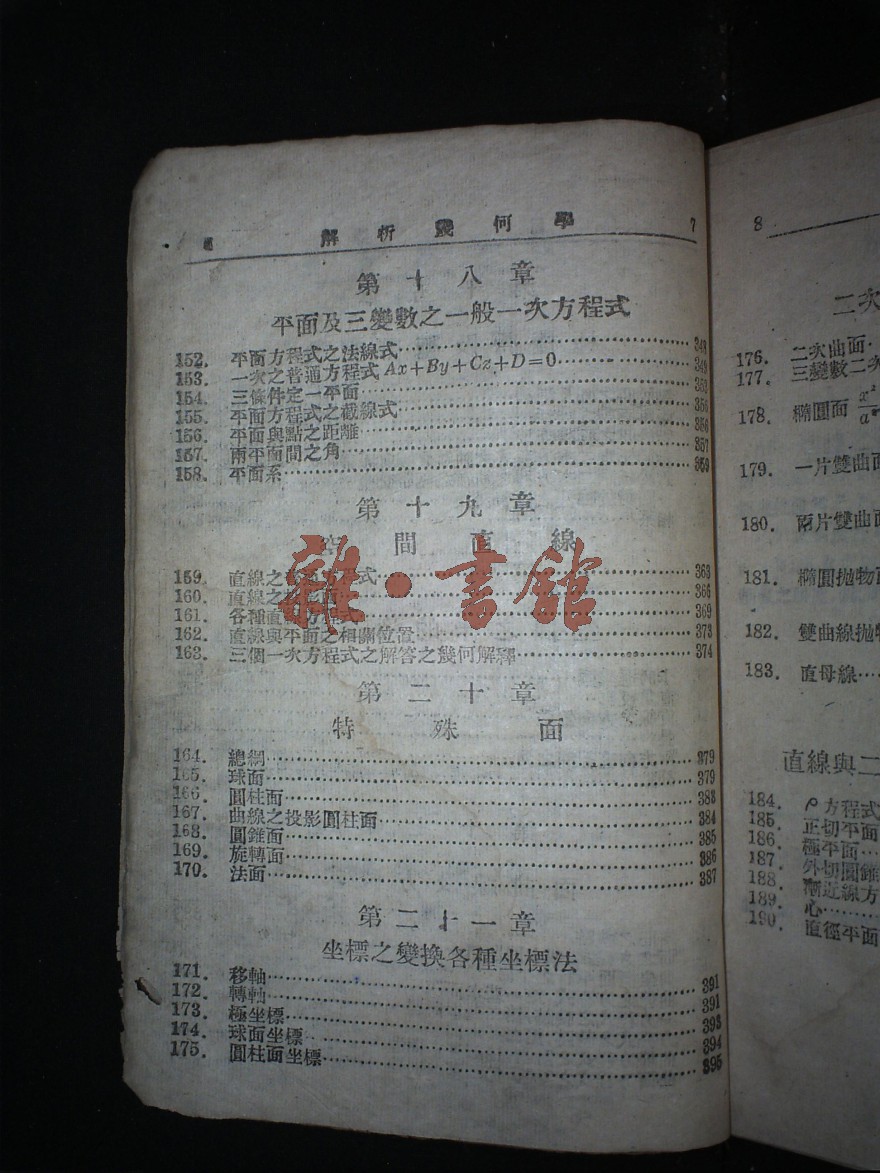 解析幾何學 7
第十八章
平面及三變數之一般一次方程式
152. 平面方程式之法線式 348
153. 一次之普通方程式Ax+By+Cz+D=0 349
154. 三條件定一平面 353
155. 平面方程式之截線式 356
156. 平面與點之距離 356
157. 兩平面間之角 357
158. 平面系 359
第十九章
空間直線
159. 直線之 方程式 363
160. 直線之 366
161. 各種直線方程式 369
162. 直線與平面之相關位置 373
163. 三個一次方程式之解答之幾何解釋 374
第二十章
特殊面
164. 總綱 379
165. 球面 379
166. 圓柱面 383
167. 曲線之投影圓柱面 384
168. 圓錐面 385
169. 旋轉面 386
170. 法面 387
第二十一章
坐標之變換各種坐標法
171. 移軸 391
172. 轉軸 391
173. 極坐標 393
174. 球面坐標 394
175. 圓柱面坐標 395
雜·書館
8
二次
176. 二次曲面
177. 三變數二次
178. 橢圓面 x²/a²
179. 一片雙曲面
180. 兩片雙曲面
181. 橢圓拋物面
182. 雙曲線拋物
183. 直母線
直線與二
184. ρ方程式
185. 正切平面
186. 極平面
187. 外切圓錐
188. 漸近線方
189. 心
190. 直徑平面